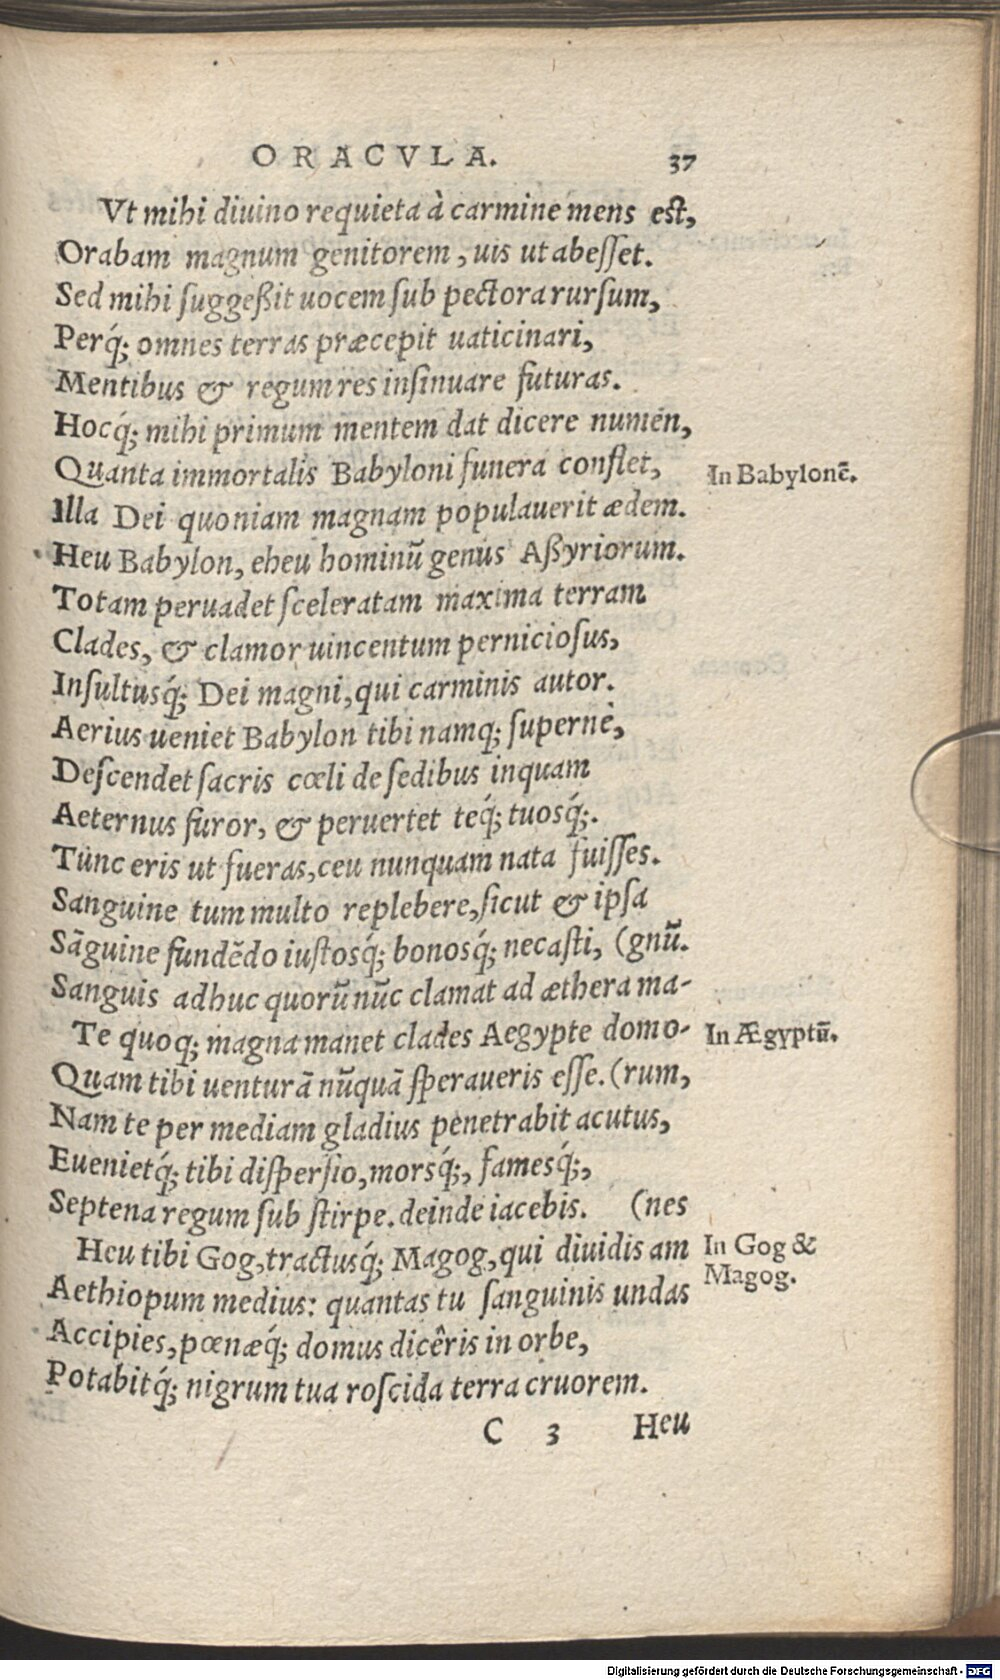 ORACVLA. 37
Vt mihi diuino requieta à carmine mens est,
Orabam magnum genitorem, uis ut abesset.
Sed mihi suggeßit uocem sub pectora rursum,
Perq́; omnes terras præcepit uaticinari,
Mentibus & regum res insinuare futuras.
Hocq́; mihi primum mentem dat dicere numen,
Quanta immortalis Babyloni funera conflet, In Babylonē.
Illa Dei quoniam magnam populauerit ædem.
Heu Babylon, eheu hominū genus Aßyriorum.
Totam peruadet sceleratam maxima terram
Clades, & clamor uincentum perniciosus,
Insultusq́; Dei magni, qui carminis autor.
Aerius ueniet Babylon tibi namq; supernè,
Descendet sacris cœli de sedibus inquam
Aeternus furor, & peruertet teq́; tuosq́;.
Tunc eris ut fueras, ceu nunquam nata fuisses.
Sanguine tum multo replebere, sicut & ipsa
Sāguine fundēdo iustosq́; bonosq́; necasti, (gnū.
Sanguis adhuc quorū nūc clamat ad æthera ma-
Te quoq; magna manet clades Aegypte domo- In Ægyptū.
Quam tibi uenturā nūquā speraueris esse. (rum,
Nam te per mediam gladius penetrabit acutus,
Euenietq́; tibi dispersio, morsq́;, famesq́;,
Septena regum sub stirpe. deinde iacebis. (nes
Heu tibi Gog, tractusq́; Magog, qui diuidis am In Gog &
Magog.
Aethiopum medius: quantas tu sanguinis undas
Accipies, pœnæq́; domus dicêris in orbe,
Potabitq́; nigrum tua roscida terra cruorem.
C 3 Heu
Digitalisierung gefördert durch die Deutsche Forschungsgemeinschaft - DFG